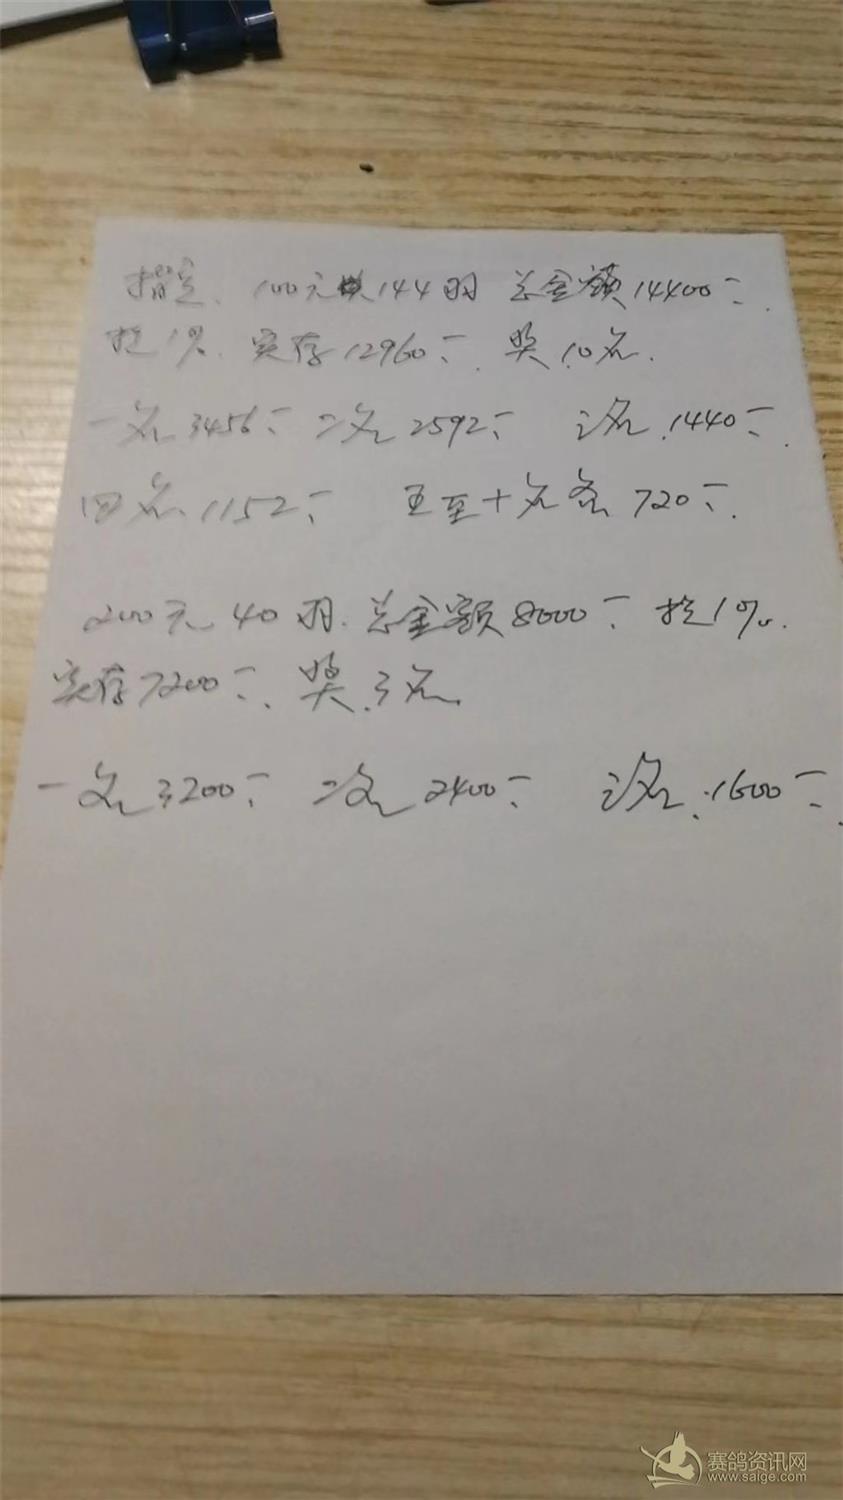 指定. 100元 144羽 总金额14400元.
抡1%. 实存12960元. 奖.10名.
一名3456元 二名2592元 三名.1440元.
四名.1152元 五至十名各720元.
200元 40羽. 总金额8000元 抡1%.
实存7200元. 奖.3名.
一名3200元 二名2400元 三名.1600元.
赛鸽资讯网
www.saige.com